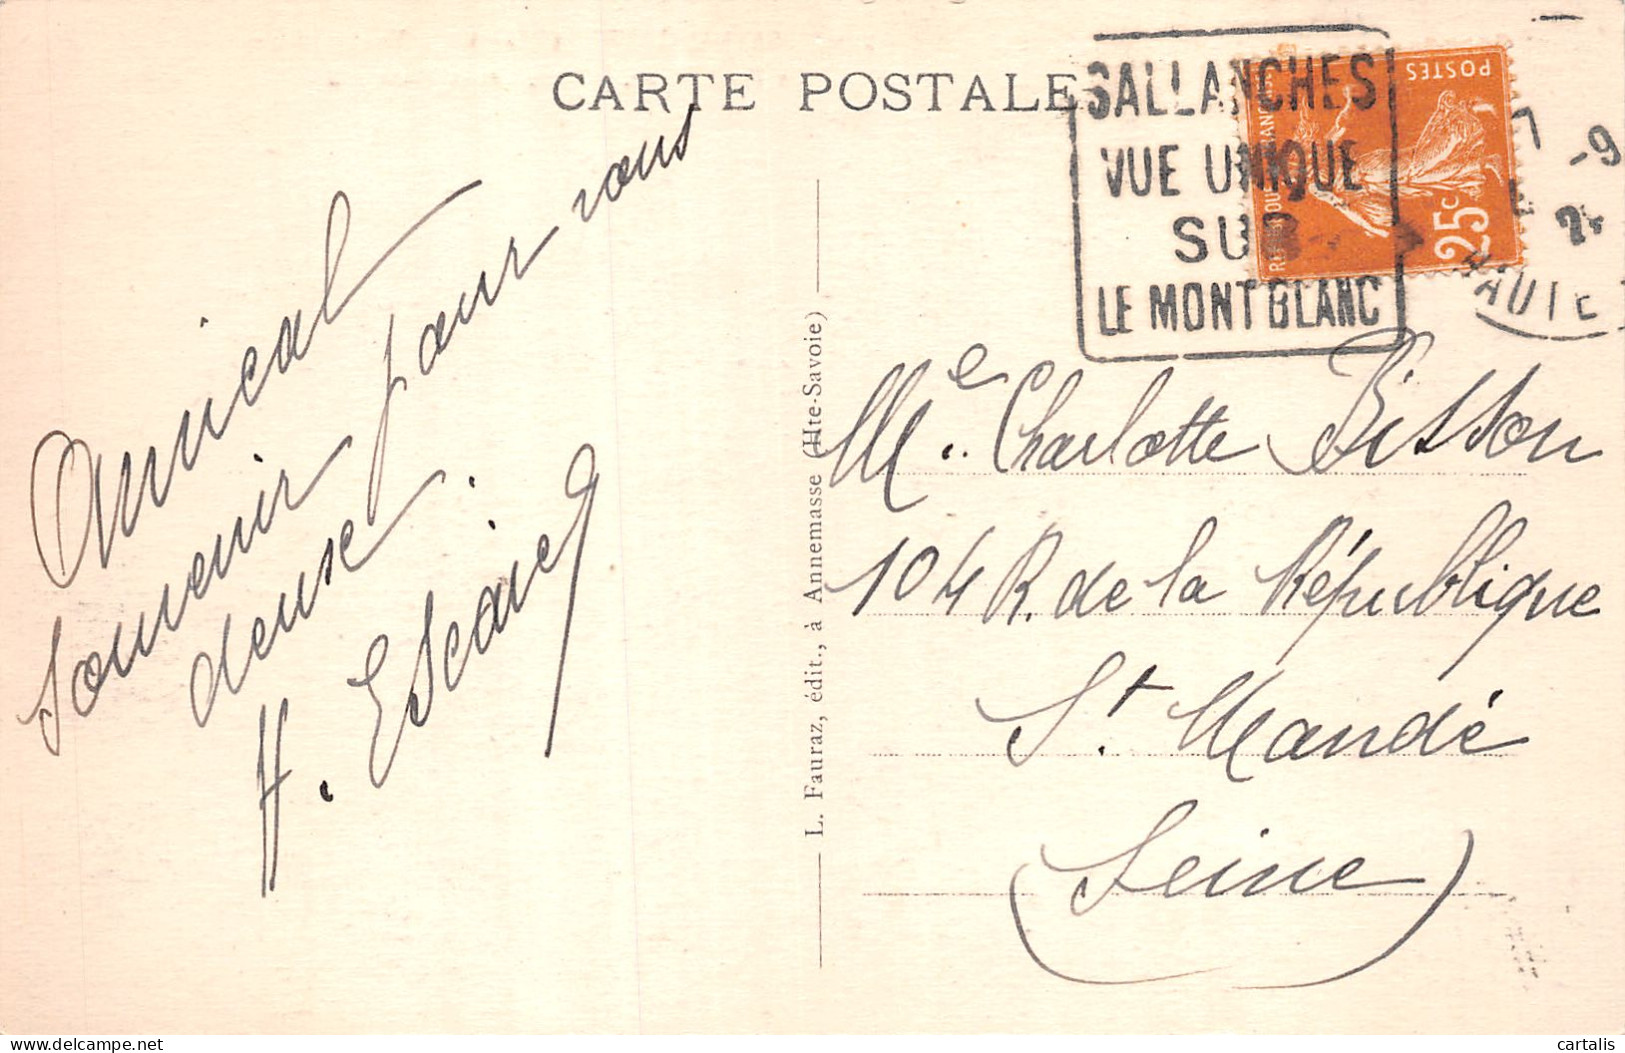 CARTE POSTALE
SALLANCHES
VUE UNIQUE
SUR
LE MONT BLANC
POSTES
25c
7 -9
HAUTE
Amical
souvenir pour vous
deuse.
H.
L. Fauraz, édit., à Annemasse (Hte-Savoie)
Me. Charlotte Bisson
104 R. de la République
St. Mandé
Seine
delcampe.net
cartalis